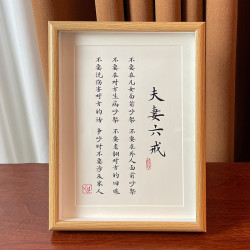 夫妻六戒
不要在儿女面前吵架 不要在外人面前吵架
不要在对方生病吵架 不要老翻对方的旧账
不要说伤害对方的话 争吵时不要涉及家人